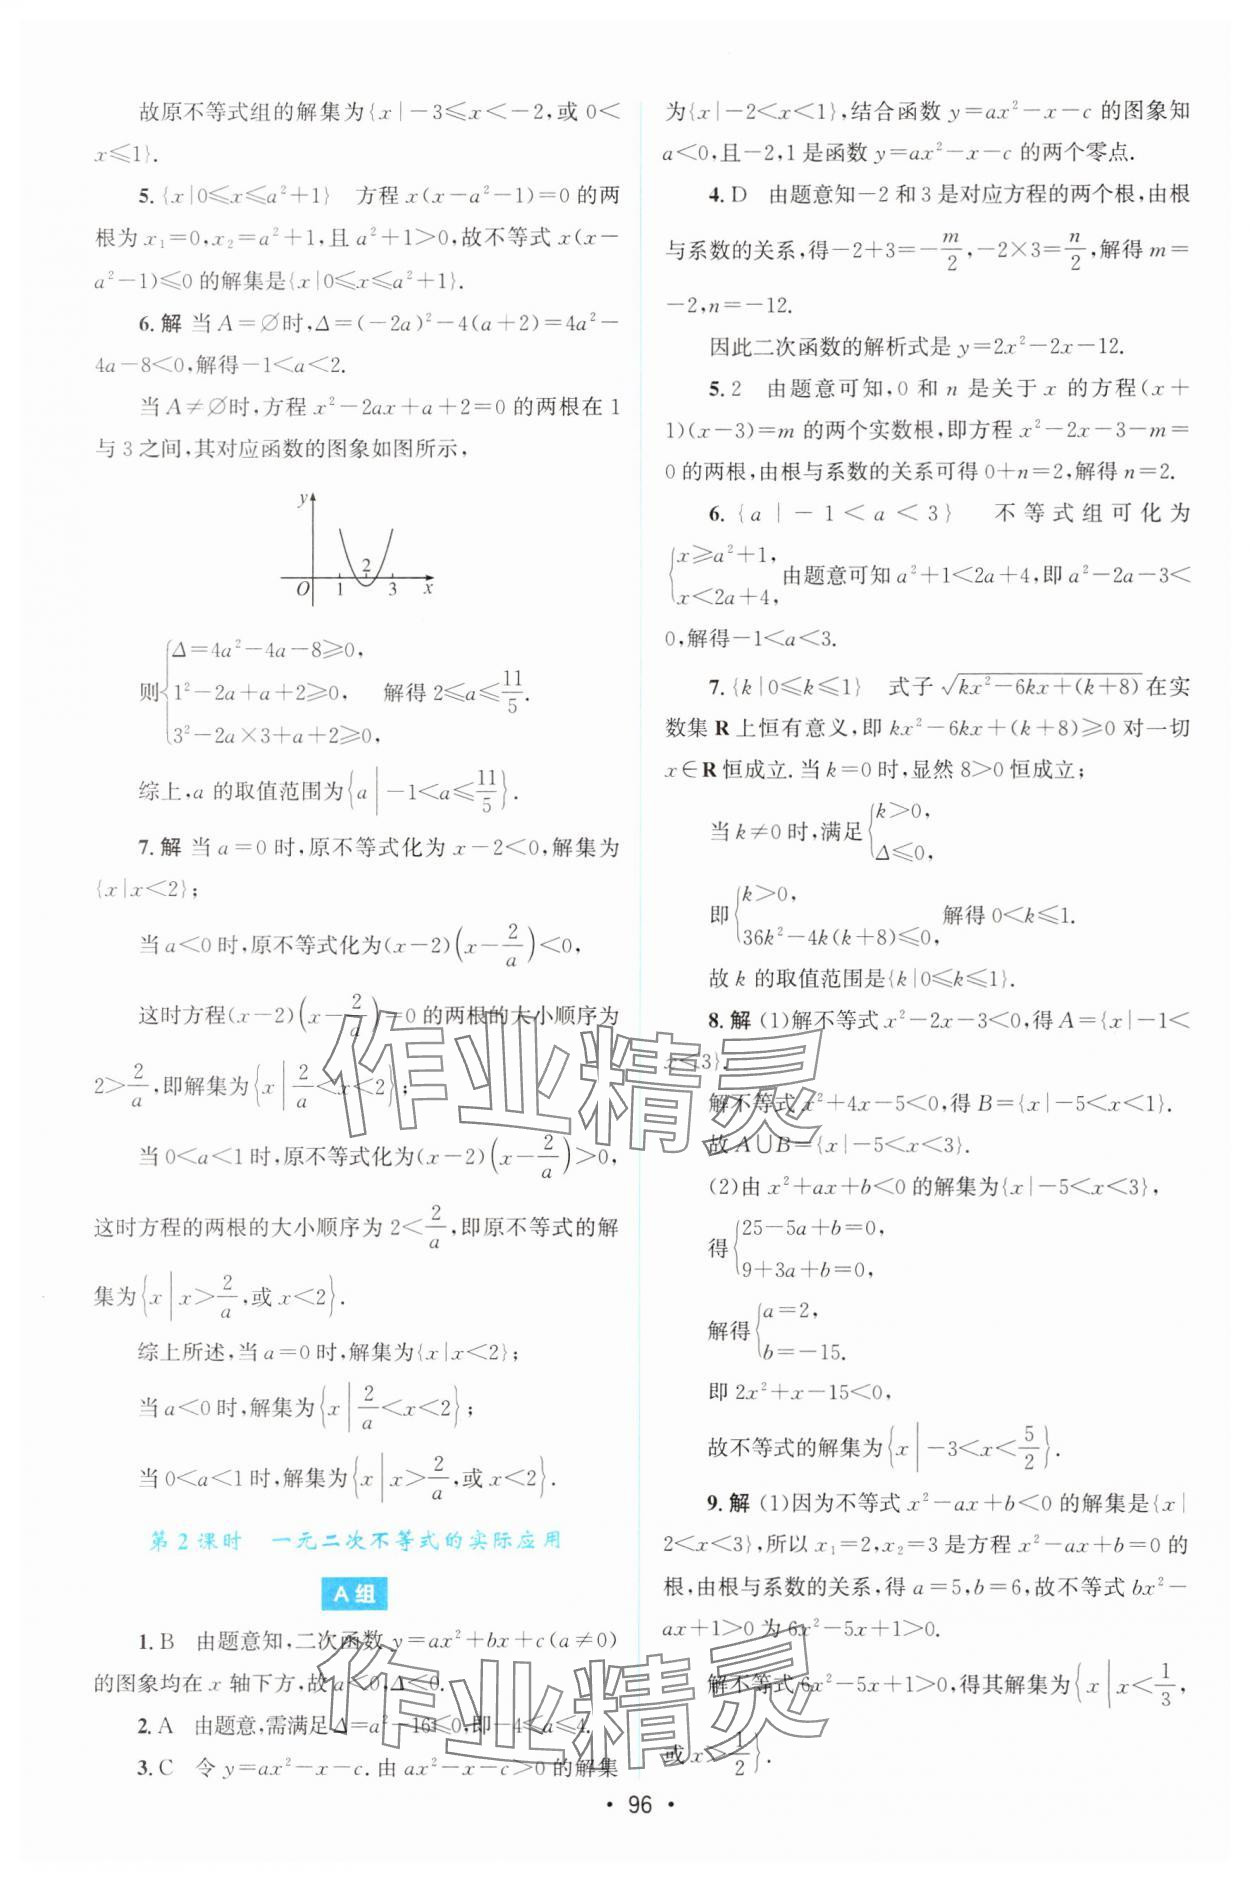 故原不等式组的解集为{x|-3≤x<-2,或0<
x≤1}.
5. {x|0≤x≤a²+1}　方程 x(x-a²-1)=0 的两
根为 x₁=0,x₂=a²+1,且 a²+1>0,故不等式 x(x-
a²-1)≤0 的解集是{x|0≤x≤a²+1}.
6. 解 当 A=∅时,Δ=(-2a)²-4(a+2)=4a²-
4a-8<0,解得-1<a<2.
当 A≠∅时,方程 x²-2ax+a+2=0 的两根在 1
与 3 之间,其对应函数的图象如图所示,
y
2
O 1 3 x
则{Δ=4a²-4a-8≥0,
1²-2a+a+2≥0,　解得 2≤a≤11/5.
3²-2a×3+a+2≥0,
综上,a 的取值范围为{a|-1<a≤11/5}.
7. 解 当 a=0 时,原不等式化为 x-2<0,解集为
{x|x<2};
当 a<0 时,原不等式化为(x-2)(x-2/a)<0,
这时方程(x-2)(x-2/a)=0 的两根的大小顺序为
2>2/a,即解集为{x|2/a<x<2};
当 0<a<1 时,原不等式化为(x-2)(x-2/a)>0,
这时方程的两根的大小顺序为 2<2/a,即原不等式的解
集为{x|x>2/a,或x<2}.
综上所述,当 a=0 时,解集为{x|x<2};
当 a<0 时,解集为{x|2/a<x<2};
当 0<a<1 时,解集为{x|x>2/a,或 x<2}.
第 2 课时　一元二次不等式的实际应用
A 组
1. B　由题意知,二次函数 y=ax²+bx+c(a≠0)
的图象均在 x 轴下方,故 a<0,Δ<0.
2. A　由题意,需满足 Δ=a²-16≤0,即-4≤a≤4.
3. C　令 y=ax²-x-c.由 ax²-x-c>0 的解集
为{x|-2<x<1},结合函数 y=ax²-x-c 的图象知
a<0,且-2,1 是函数 y=ax²-x-c 的两个零点.
4. D　由题意知-2 和 3 是对应方程的两个根,由根
与系数的关系,得-2+3=-m/2,-2×3=n/2,解得 m=
-2,n=-12.
因此二次函数的解析式是 y=2x²-2x-12.
5. 2　由题意可知,0 和 n 是关于 x 的方程(x+
1)(x-3)=m 的两个实数根,即方程 x²-2x-3-m=
0 的两根,由根与系数的关系可得 0+n=2,解得 n=2.
6. {a|-1<a<3}　不等式组可化为
{x≥a²+1,
x<2a+4,由题意可知 a²+1<2a+4,即 a²-2a-3<
0,解得-1<a<3.
7. {k|0≤k≤1}　式子 √(kx²-6kx+(k+8)) 在实
数集 R 上恒有意义,即 kx²-6kx+(k+8)≥0 对一切
x∈R 恒成立.当 k=0 时,显然 8>0 恒成立;
当 k≠0 时,满足{k>0,
Δ≤0,
即{k>0,
36k²-4k(k+8)≤0,解得 0<k≤1.
故 k 的取值范围是{k|0≤k≤1}.
8. 解 (1)解不等式 x²-2x-3<0,得 A={x|-1<
x<3}.
解不等式 x²+4x-5<0,得 B={x|-5<x<1}.
故 A∪B={x|-5<x<3}.
(2)由 x²+ax+b<0 的解集为{x|-5<x<3},
得{25-5a+b=0,
9+3a+b=0,
解得{a=2,
b=-15.
即 2x²+x-15<0,
故不等式的解集为{x|-3<x<5/2}.
9. 解 (1)因为不等式 x²-ax+b<0 的解集是{x|
2<x<3},所以 x₁=2,x₂=3 是方程 x²-ax+b=0 的
根,由根与系数的关系,得 a=5,b=6,故不等式 bx²-
ax+1>0 为 6x²-5x+1>0.
解不等式 6x²-5x+1>0,得其解集为{x|x<1/3,
或 x>1/2}.
作业精灵
作业精灵
• 96 •